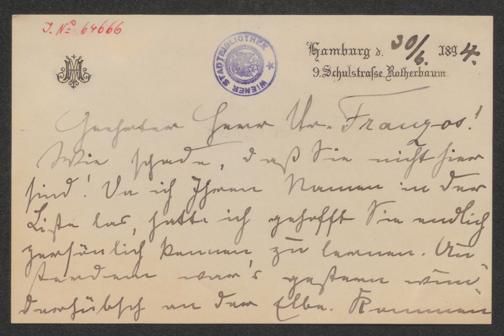 J. No 64666
WIENER STADTBIBLIOTHEK
Hamburg d. 30/6. 1894.
9. Schulstraße Rotherbaum
Geehrter Herr Dr. Franzos!
Wie schade, daß Sie nicht hier
sind! Da ich Ihren Namen in der
Liste las, hatte ich gehofft Sie endlich
persönlich kennen zu lernen. Außerdem
war's gestern wun-
derhübsch an der Elbe. Kommen